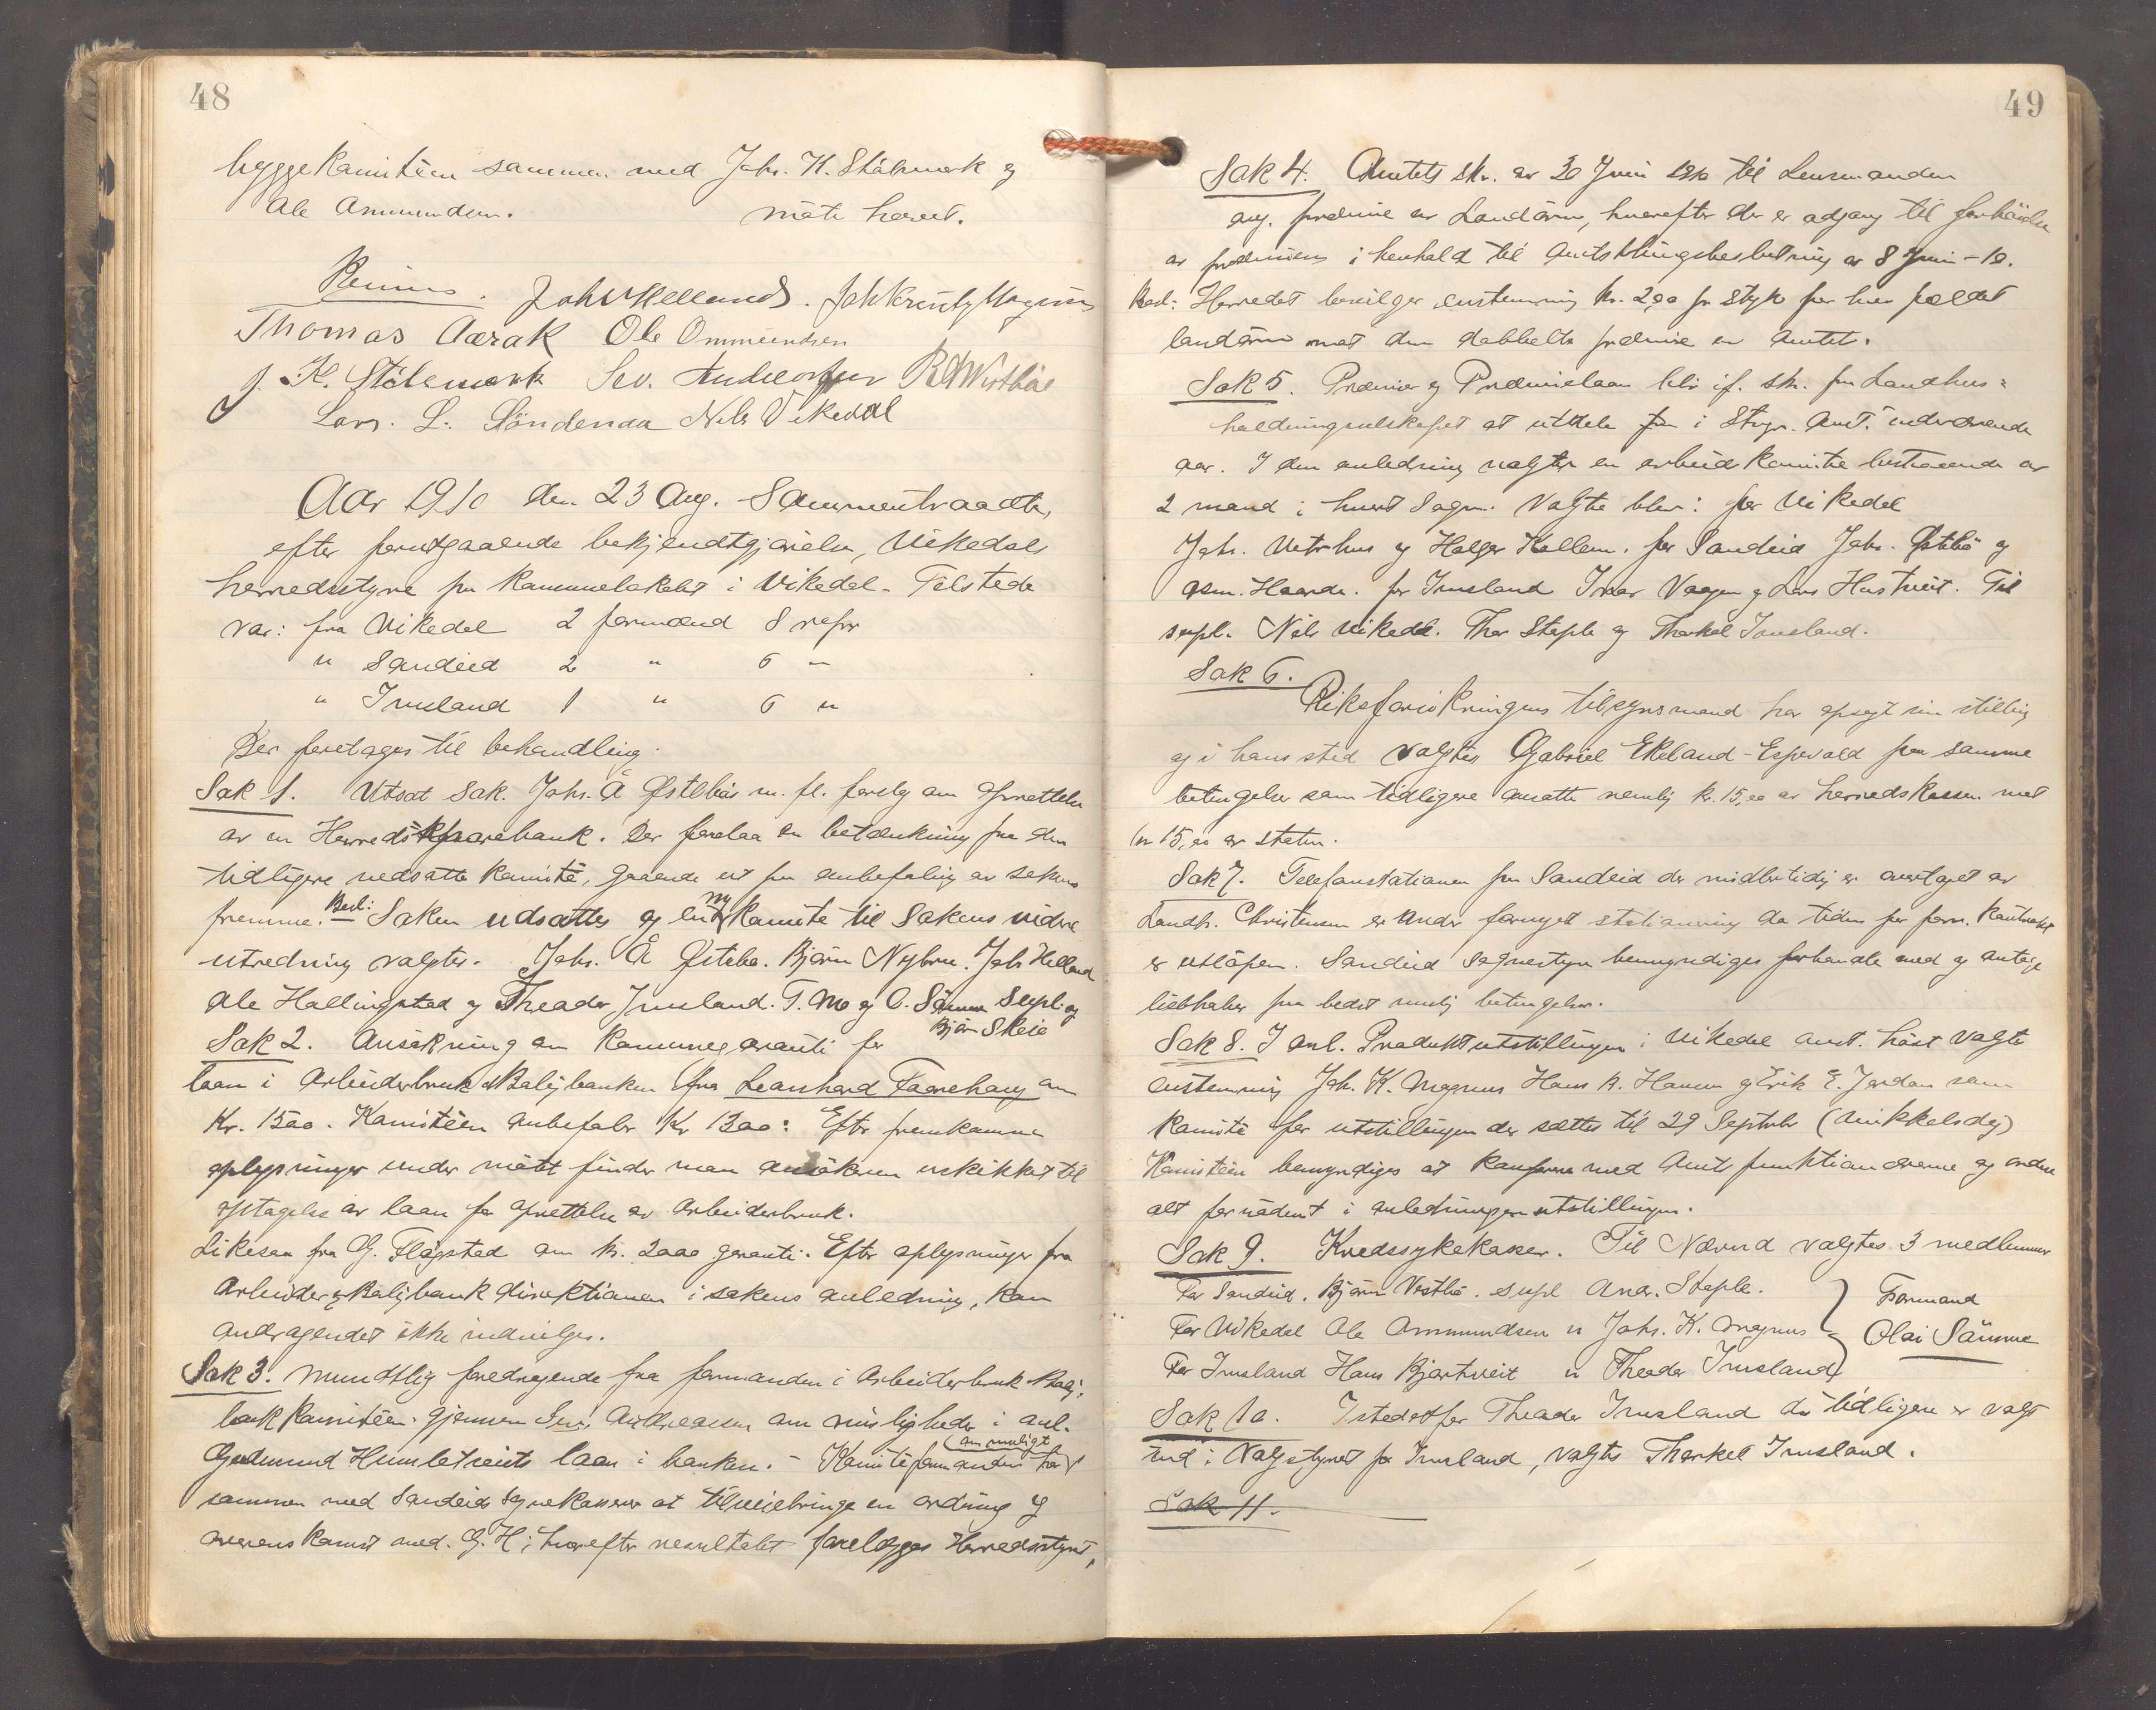 48
byggekomitéen sammen med Johs. K. Stölsmark og
Ole Ommundsen. møte hævet.
Joh Helland. Joh Kristy Magnus
Thomas Aarak Ole Ommundsen
J. K. Stölsmark Sev. Andreassen B. Westbøe
Lars. L. Söndenaa Nils Vikedal
Aar 1910 den 23 Aug. Sammentraadte,
efter forutgaaende bekjendtgjørelse, Vikedals
herredsstyre paa Kommunelokalet i Vikedal. Tilstede
var: fra Vikedal 2 formænd 8 repr
" Sandeid 2 " 6 "
" Imsland 1 " 6 "
Der foretages til behandling.
Sak 1. Utsat sak. Johs. Å Østebös m. fl. forslag om oprettelse
av en Herredssparebank. Der forelaa en betænkning fra den
tidligere nedsatte komité, gaaende ut paa anbefaling av sakens
fremme. Besl: Saken udsættes og en ny komite til Sakens videre
utredning valgtes. Johs. Å Østebø. Björn Nybru. Joh Helland
Ole Hallingstad og Theodor Imsland. T. Mo og O. Sömme Supl. og
Björn Skeie
Sak 2. Ansökning om Kommunegaranti for
laan i Arbeiderbruk & Boligbanken fra Leonhard Faarehaug om
Kr. 1500. Komitéen anbefaler Kr 1300: Efter fremkomne
oplysninger under mötet finder man ansökeren uskikket til
optagelse av laan for oprettelse av Arbeiderbruk.
Likesaa fra G. Flögstad om kr. 2000 garanti. Efter oplysninger fra
Arbeider & Boligbank direktionen i sakens anledning, kan
andragendet ikke indvilges.
Sak 3. Mundtlig foredragende fra formanden i Arbeiderbruk Bolig-
bank komitéen. Gjennem Sev. Andreassen om misligheder i anl.
Gudmund Humletveits laan i banken. - Komitéformanden har om muligt
sammen med Sandeids Sognekasserer at tilveiebringe en ordning og
overenskomst med. G. H; hvorefter resultatet forelægges Herredsstyret,
49
Sak 4. Amtets skr. av 30 Juni 1910 til Lensmanden
ang. præmie av Landörn, hvorefter der er adgang til forhöielse
av præmien i henhold til Amtstingsbeslutning av 8 Juni - 10.
Besl: Herredet bevilger enstemmig kr. 2,00 pr styk for hver fældet
landörn mot den dobbelte præmie av Amtet.
Sak 5. Præmier og Præmielaan blir if. skr. fra Landhus=
holdningsselskapet at utdele i Stvgr. Amt. indeværende
aar. I den anledning valgtes en arbeidskomite bestaaende av
2 mand i hvert Sogn. Valgte blev: for Vikedal
Johs. Vetrhus og Holger Kallem. for Sandeid Johs. Østebö og
Asm. Haarde. for Imsland Ivar Vaagen og Lars Hustveit. Til
supl. Nils Vikedal. Thor Steple og Thorkel Imsland.
Sak 6.
Riksforsikringens tilsynsmand har opsagt sin stilling
og i hans sted valgtes Gabriel Ekeland-Espevold paa samme
betingelser som tidligere ansatte nemlig kr. 15,00 av herredskassen mot
kr 15,00 av staten.
Sak 7. Telefonstationen paa Sandeid der midlertidig er overtaget av
Landh. Christensen er under fornyet stationering da tiden for forr. kontrakt
er utlöpen. Sandeid Sognestyre bemyndiges forhandle med og antage
liebhaber paa bedst mulig betingelser.
Sak 8. I anl. Produktutstillingen i Vikedal anst. höst valgtes
enstemmig Joh. K. Magnus Hans B. Hamre og Erik E. Jordan som
Komité for utstillingen der sættes til 29 September (Mikkelsdag)
Komitéen bemyndiges at konferere med Amtsfunktionærerne og ordne
alt fornödent i anledningen utstillingen.
Sak 9. Kredssykekasser. Til Nævnd valgtes 3 medlemmer
For Sandeid. Björn Vestbö. supl Andr. Steple.
For Vikedal Ole Ommundsen " Johs. K. Magnus
For Imsland Hans Bjartveit " Theodor Imsland
Formand
Olai Sömme
Sak 10. Istedetfor Theodor Imsland der tidligere er valgt
ind i Valgstyret for Imsland, valgtes Thorkel Imsland.
Sak 11.